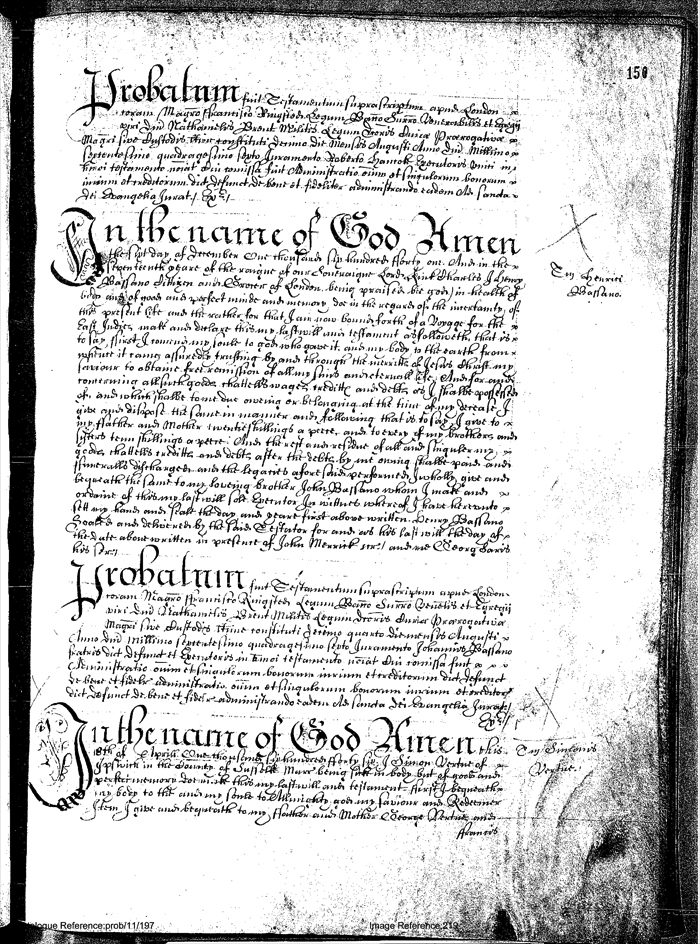 150
Probatum fuit Testamentum suprascriptum apud London
coram Magro Francisco Ringsted Legum
viri Dni Nathanielis Brent Militis Legum Curiae Praerogativae
Magri sive Custodis Itime constituti decimo die Mensis Augusti Anno Dni Millimo
quadragesimo septo Juramento Roberti Executoris
testamento noiat Cui comissa fuit Administratio omium et singulorum bonorum
iurium et creditorum dict defunct de bene et fideliter administrando eadem Ad sancta
Dei Evangelia Jurat
In the name of God Amen
the first day of December One thousand six hundred fforty one And in the
seventeenth yeare of the raigne of our Soveraigne Lord Kinge Charles I Henry
Bassano Citizen and Grocer of London being (praised be god) in health of
body and of good and perfect minde and memory doe in the regard of the incertainty of
this present life and the rather for that I am now bound forth of a Voyage for the
East Indies make and declare this my last will and testament as followeth that is
to say, ffirst I comend my soule to god who gave it, and my body to the earth from
whence it came assuredly trusting by and through the meritts of Jesus Christ my
saviour to obtaine free remission of all my sinns and eternall life, And for and
concerning all such goods, chattells wages, creditts and debts, as I shalbe possessed
of, and which shalbe to me due oweing or belonging at the time of my decease I
give and dispose the same in manner and following that is to say, I give to
my ffather and Mother twentie shillings a peece, and to every of my brothers and
sisters tenn shillings a peece. And the rest and residue of all and singuler my
goods, chattells creditts and debts, after the debts, by me owing shalbe paid and
ffuneralls discharged and the legacies aforesaid performed, I wholly give and
bequeath the same to my loveing brother John Bassano whom I make and
ordaine of this my last will sole Executor In witnes whereof I have hereunto
sett my hand and seale the day and yeare first above written. Henry Bassano
Sealed and delivered by the said Testator for and as his last will the day of
the date above written in presence of John Merrick scr: and me Georg
his ser:
Ten Henrici
Bassano
Probatum fuit Testamentum suprascriptum apud London
coram Magro Francisco Ringsted Legum
viri Dni Nathanielis Brent Militis Legum Curiae Praerogativae
Magri sive Custodis Itime constituti Decimo quarto die mensis Augusti
Anno Dni Millimo quadragesimo septo Juramento Johannis Bassano
fratris dict defunct et Executoris in testamento noiat Cui comissa fuit
Administratio omium et singulorum bonorum iurium et creditorum dict defunct
de bene et fideliter administrando
dict defunct de bene et fideliter administrando eadem Ad sancta Dei Evangelia Jurat
In the name of God Amen this
18th of Aprill One thousand six hundred fforty six I Simon Vertue of
Ipswich in the County of Suffolk being sick in body but of good and
perfect memory doe make this my last will and testament ffirst I bequeath
my body to the and my soule to Allmighty god my saviour and Redeemer
Item I give and bequeath to my ffather and Mother George Vertue and
ffrancis
Ten Simonis
Vertue
Catalogue Reference:prob/11/197
Image Reference:219